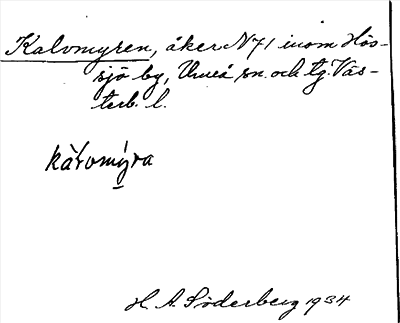 Kalvmyren, åker N 71 inom Hös-
sjö by, Umeå sn. och tg. Väs-
terb. l.
kàlvomýra
H. A. Söderberg 1934